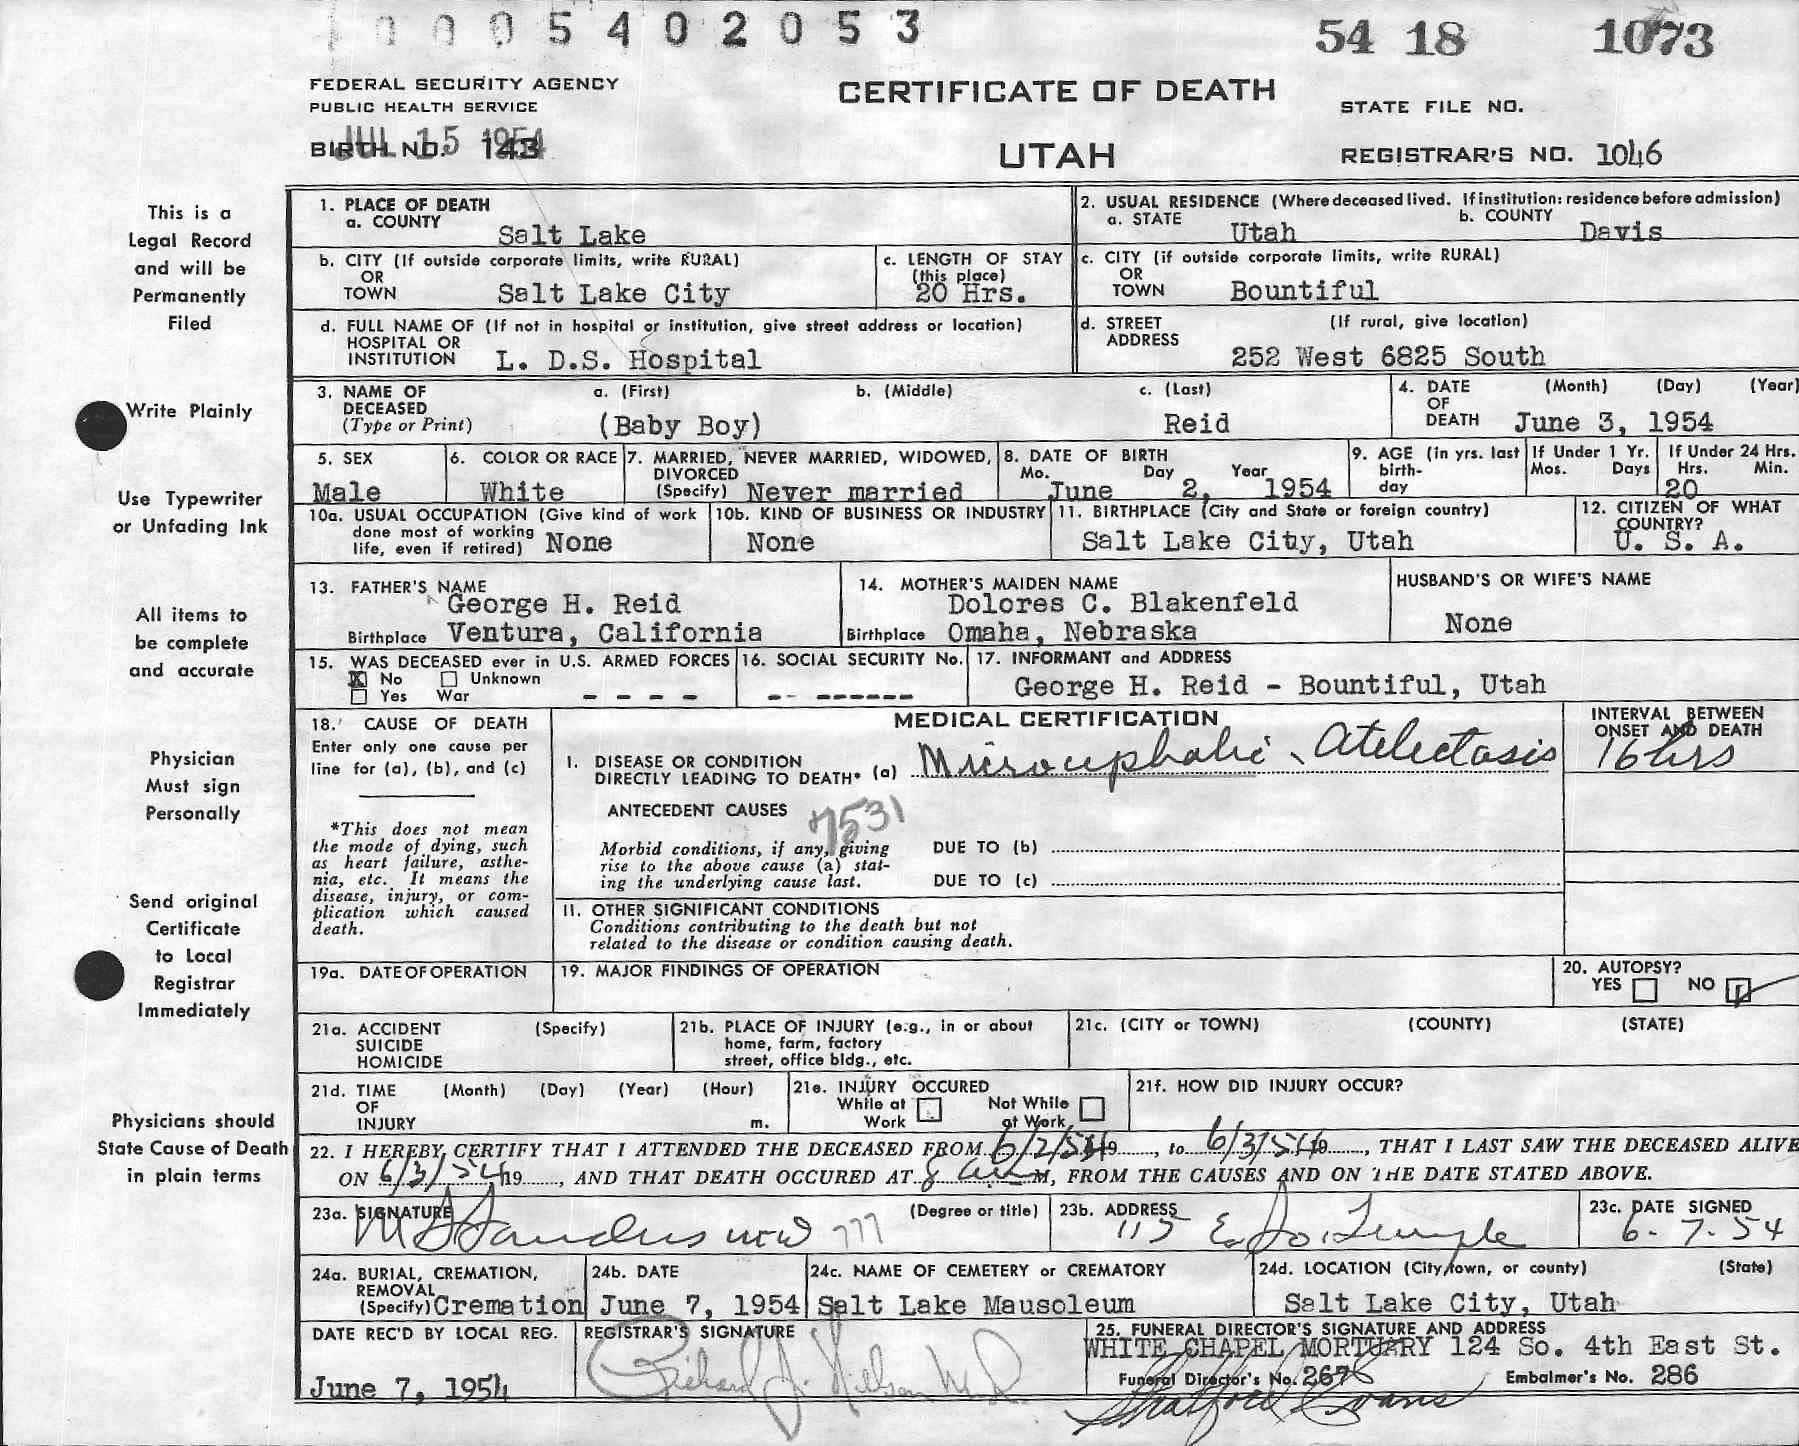 0005402053
54 18 1073
FEDERAL SECURITY AGENCY
PUBLIC HEALTH SERVICE
CERTIFICATE OF DEATH
STATE FILE NO.
JUL 15 1954
BIRTH NO. 143
UTAH
REGISTRAR'S NO. 1046
This is a
Legal Record
and will be
Permanently
Filed
Write Plainly
Use Typewriter
or Unfading Ink
All items to
be complete
and accurate
Physician
Must sign
Personally
Send original
Certificate
to Local
Registrar
Immediately
Physicians should
State Cause of Death
in plain terms
1. PLACE OF DEATH
a. COUNTY Salt Lake
2. USUAL RESIDENCE (Where deceased lived. If institution: residence before admission)
a. STATE Utah b. COUNTY Davis
b. CITY (If outside corporate limits, write RURAL)
OR
TOWN Salt Lake City
c. LENGTH OF STAY
(this place)
20 Hrs.
c. CITY (if outside corporate limits, write RURAL)
OR
TOWN Bountiful
d. FULL NAME OF (If not in hospital or institution, give street address or location)
HOSPITAL OR
INSTITUTION L. D.S. Hospital
d. STREET (If rural, give location)
ADDRESS
252 West 6825 South
3. NAME OF a. (First) b. (Middle) c. (Last)
DECEASED
(Type or Print) (Baby Boy) Reid
4. DATE (Month) (Day) (Year)
OF
DEATH June 3, 1954
5. SEX
Male
6. COLOR OR RACE
White
7. MARRIED, NEVER MARRIED, WIDOWED,
DIVORCED
(Specify) Never married
8. DATE OF BIRTH
Mo. Day Year
June 2, 1954
9. AGE (in yrs. last
birth-
day
If Under 1 Yr.
Mos. Days
If Under 24 Hrs.
Hrs. Min.
20
10a. USUAL OCCUPATION (Give kind of work
done most of working
life, even if retired) None
10b. KIND OF BUSINESS OR INDUSTRY
None
11. BIRTHPLACE (City and State or foreign country)
Salt Lake City, Utah
12. CITIZEN OF WHAT
COUNTRY?
U. S. A.
13. FATHER'S NAME
George H. Reid
Birthplace Ventura, California
14. MOTHER'S MAIDEN NAME
Dolores C. Blakenfeld
Birthplace Omaha, Nebraska
HUSBAND'S OR WIFE'S NAME
None
15. WAS DECEASED ever in U.S. ARMED FORCES
X No Unknown
Yes War - - - -
16. SOCIAL SECURITY No.
-- ------
17. INFORMANT and ADDRESS
George H. Reid - Bountiful, Utah
18. CAUSE OF DEATH
Enter only one cause per
line for (a), (b), and (c)
*This does not mean
the mode of dying, such
as heart failure, asthe-
nia, etc. It means the
disease, injury, or com-
plication which caused
death.
MEDICAL CERTIFICATION
INTERVAL BETWEEN
ONSET AND DEATH
I. DISEASE OR CONDITION
DIRECTLY LEADING TO DEATH* (a) Microcephalic Atelectasis 16 hrs
ANTECEDENT CAUSES
7531
Morbid conditions, if any, giving
rise to the above cause (a) stat-
ing the underlying cause last.
DUE TO (b)
DUE TO (c)
II. OTHER SIGNIFICANT CONDITIONS
Conditions contributing to the death but not
related to the disease or condition causing death.
19a. DATE OF OPERATION
19. MAJOR FINDINGS OF OPERATION
20. AUTOPSY?
YES NO
21a. ACCIDENT (Specify)
SUICIDE
HOMICIDE
21b. PLACE OF INJURY (e.g., in or about
home, farm, factory
street, office bldg., etc.
21c. (CITY or TOWN) (COUNTY) (STATE)
21d. TIME (Month) (Day) (Year) (Hour)
OF
INJURY m.
21e. INJURY OCCURED
While at Not While
Work at Work
21f. HOW DID INJURY OCCUR?
22. I HEREBY CERTIFY THAT I ATTENDED THE DECEASED FROM 6/2/54 19, to 6/3/54 19, THAT I LAST SAW THE DECEASED ALIVE
ON 6/3/54 19, AND THAT DEATH OCCURED AT 8 am M, FROM THE CAUSES AND ON THE DATE STATED ABOVE.
23a. SIGNATURE (Degree or title)
777
23b. ADDRESS
115 E. So. Temple
23c. DATE SIGNED
6-7-54
24a. BURIAL, CREMATION,
REMOVAL
(Specify) Cremation
24b. DATE
June 7, 1954
24c. NAME OF CEMETERY or CREMATORY
Salt Lake Mausoleum
24d. LOCATION (City, town, or county) (State)
Salt Lake City, Utah
DATE REC'D BY LOCAL REG.
June 7, 1954
REGISTRAR'S SIGNATURE
25. FUNERAL DIRECTOR'S SIGNATURE AND ADDRESS
WHITE CHAPEL MORTUARY 124 So. 4th East St.
Funeral Director's No. 267 Embalmer's No. 286